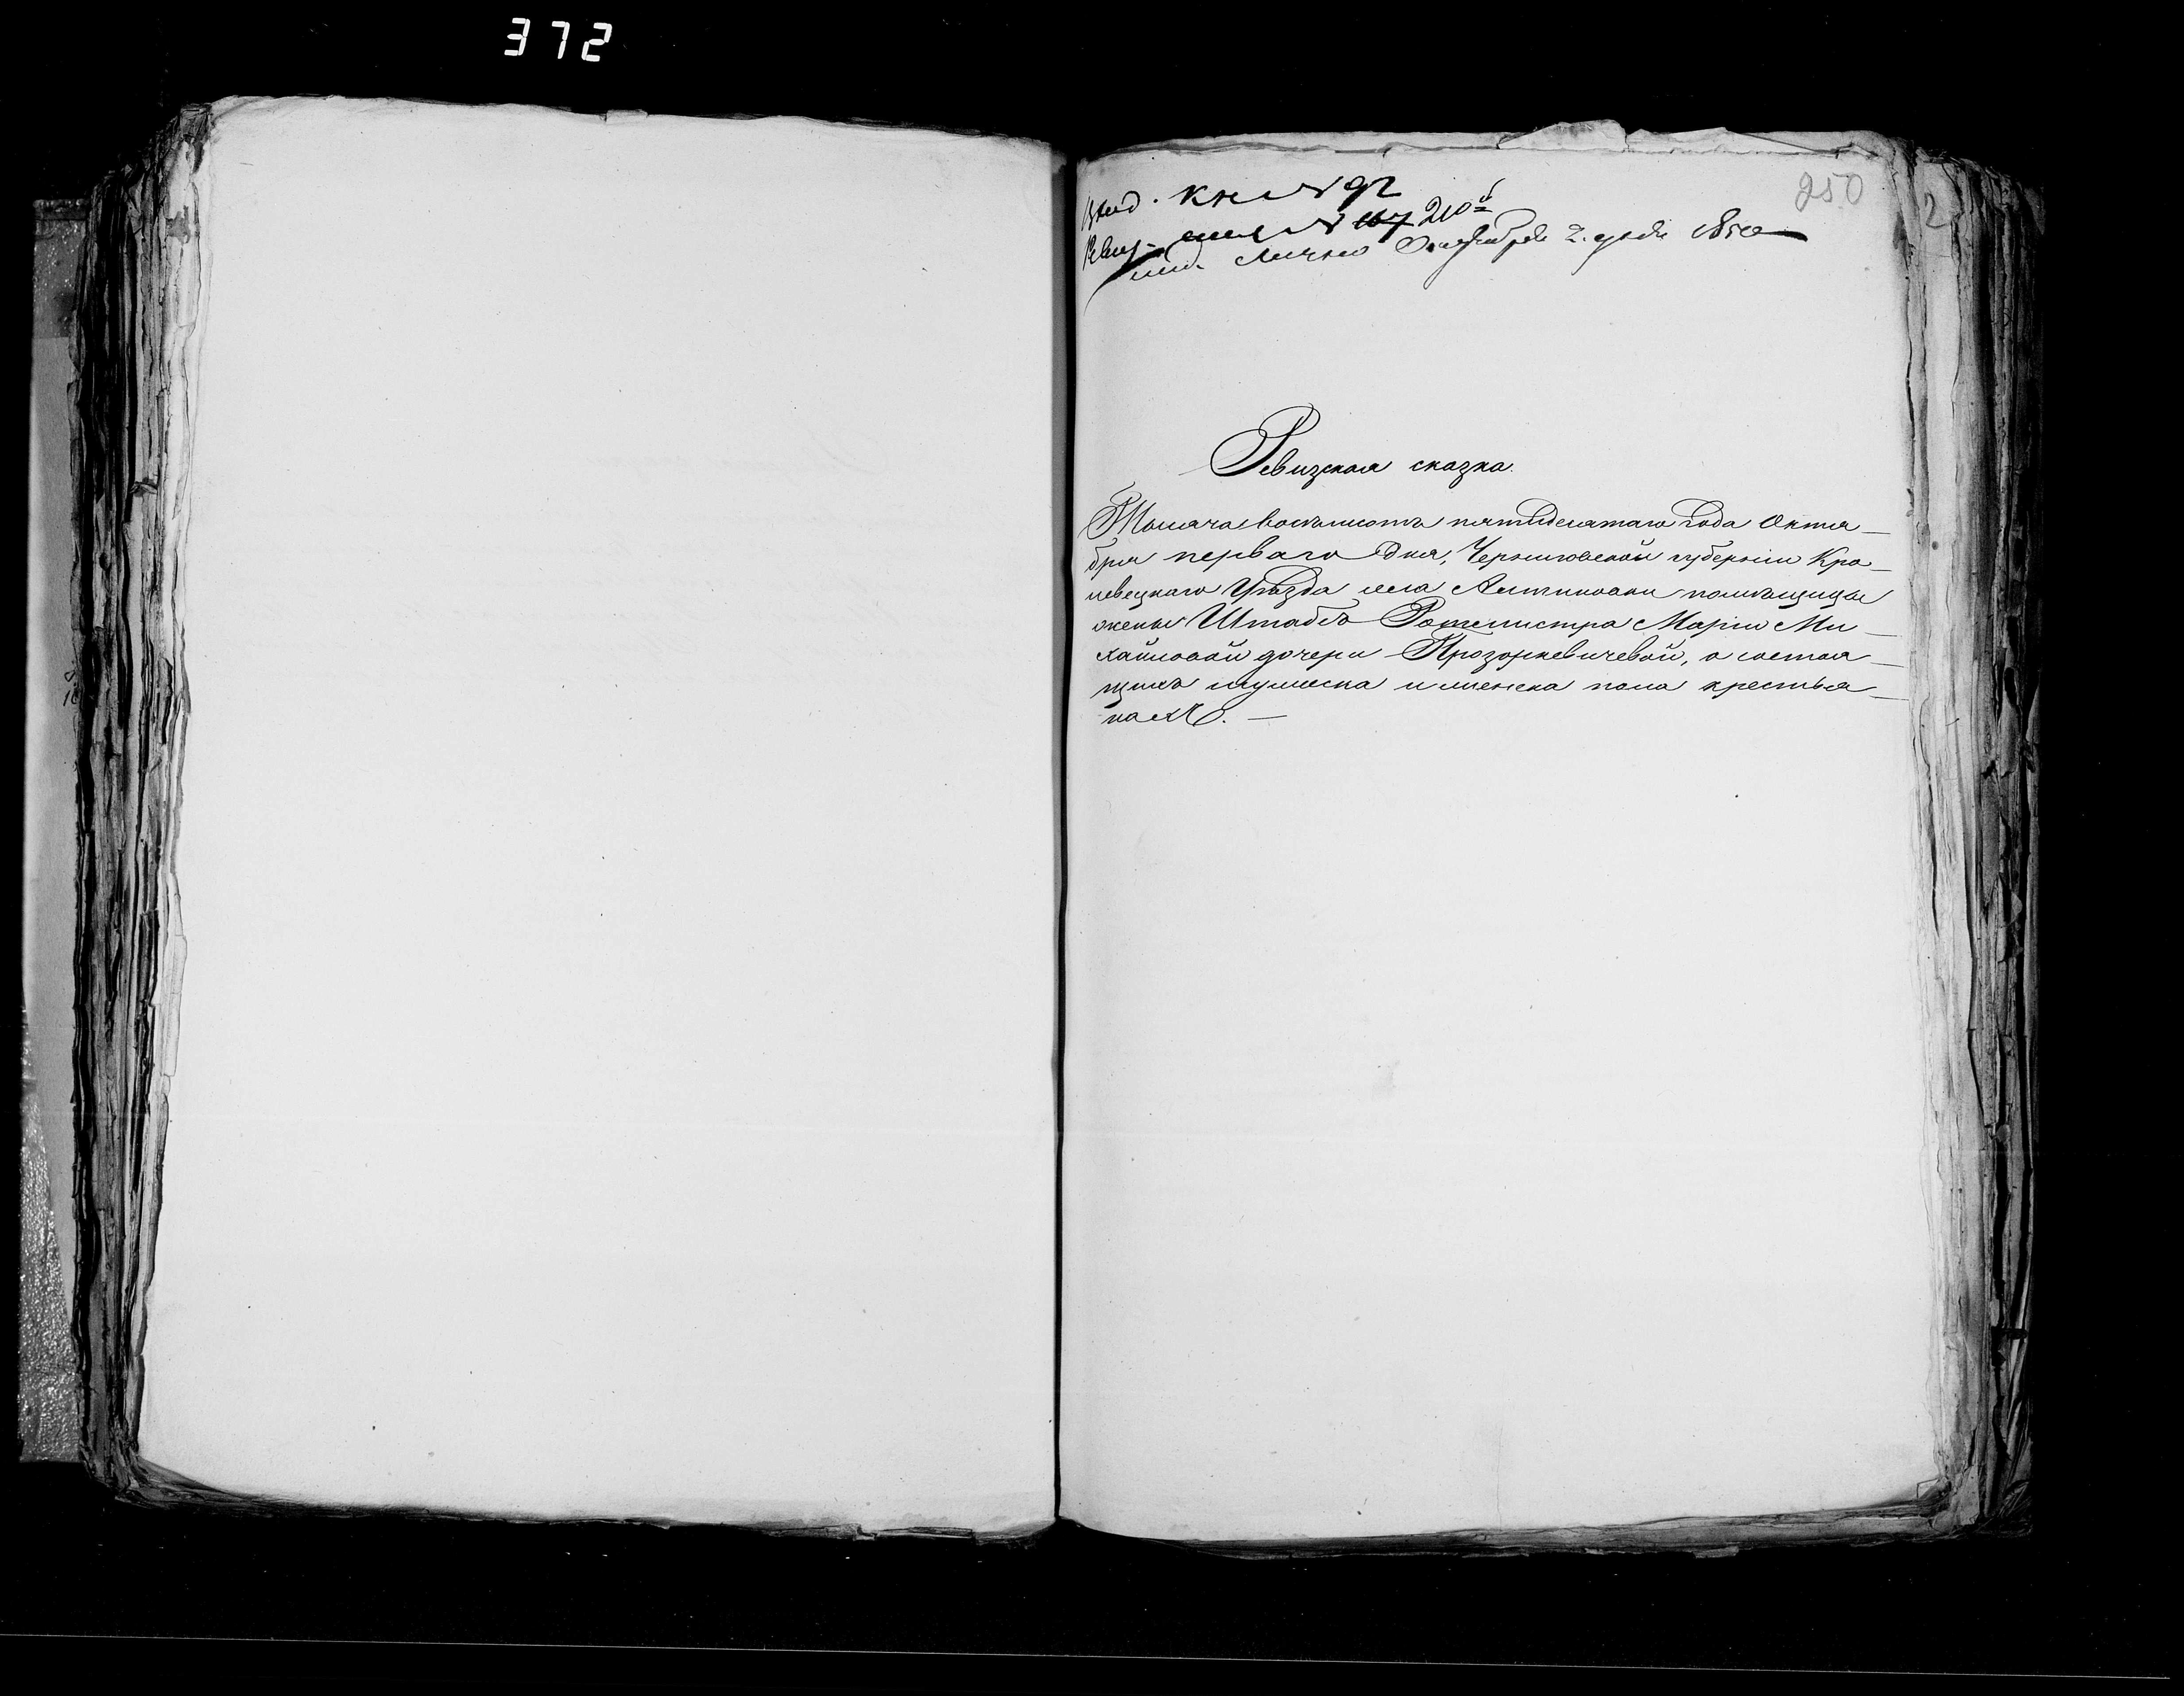 372
250
Вход. кн № 92
Ревиз. № 167 210й
под. лично Октября 2. дня 1850
Ревизская сказка.
Тысяча восемьсотъ пятидесятаго года Октя-
бря перваго дня, Черниговской губерніи Кро-
левецкаго Уѣзда села Алтиновки помѣщицы
жены Штабъ Ротмистра Маріи Ми-
хайловой дочери Прозоркевичевой, о состоя-
щихъ мужеска и женска пола крестья-
нахъ. —